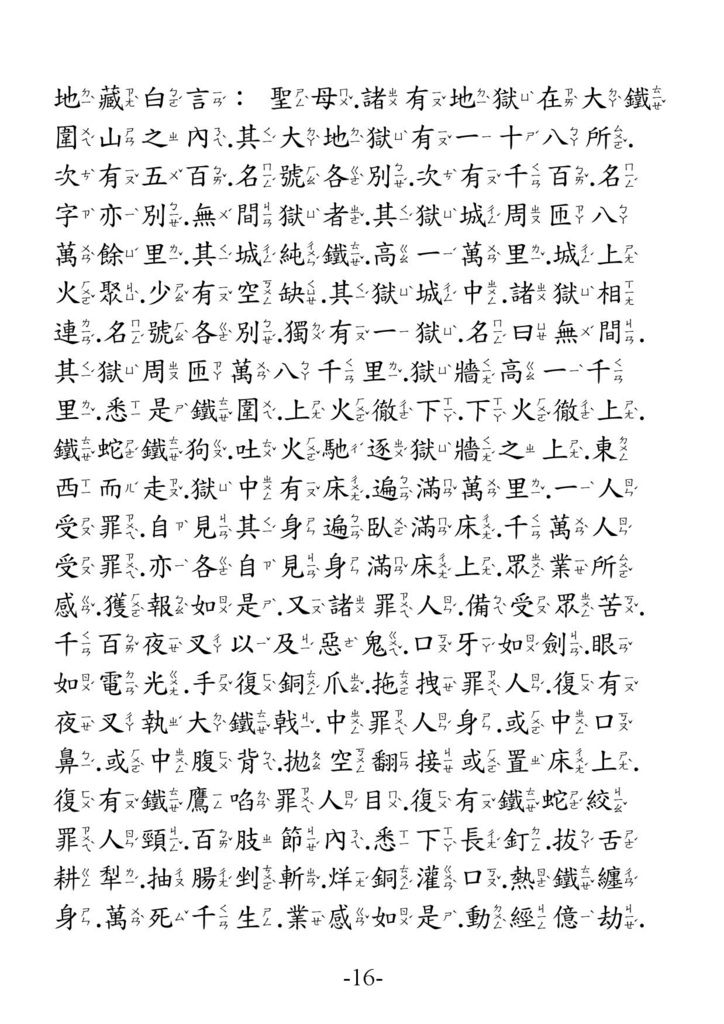 地藏白言： 聖母.諸有地獄在大鐵
圍山之內.其大地獄有一十八所.
次有五百.名號各別.次有千百.名
字亦別.無間獄者.其獄城周匝八
萬餘里.其城純鐵.高一萬里.城上
火聚.少有空缺.其獄城中.諸獄相
連.名號各別.獨有一獄.名曰無間.
其獄周匝萬八千里.獄牆高一千
里.悉是鐵圍.上火徹下.下火徹上.
鐵蛇鐵狗.吐火馳逐獄牆之上.東
西而走.獄中有床.遍滿萬里.一人
受罪.自見其身遍臥滿床.千萬人
受罪.亦各自見身滿床上.眾業所
感.獲報如是.又諸罪人.備受眾苦.
千百夜叉以及惡鬼.口牙如劍.眼
如電光.手復銅爪.拖拽罪人.復有
夜叉執大鐵戟.中罪人身.或中口
鼻.或中腹背.拋空翻接或置床上.
復有鐵鷹啗罪人目.復有鐵蛇絞
罪人頸.百肢節內.悉下長釘.拔舌
耕犁.抽腸剉斬.烊銅灌口.熱鐵纏
身.萬死千生.業感如是.動經億劫.
-16-